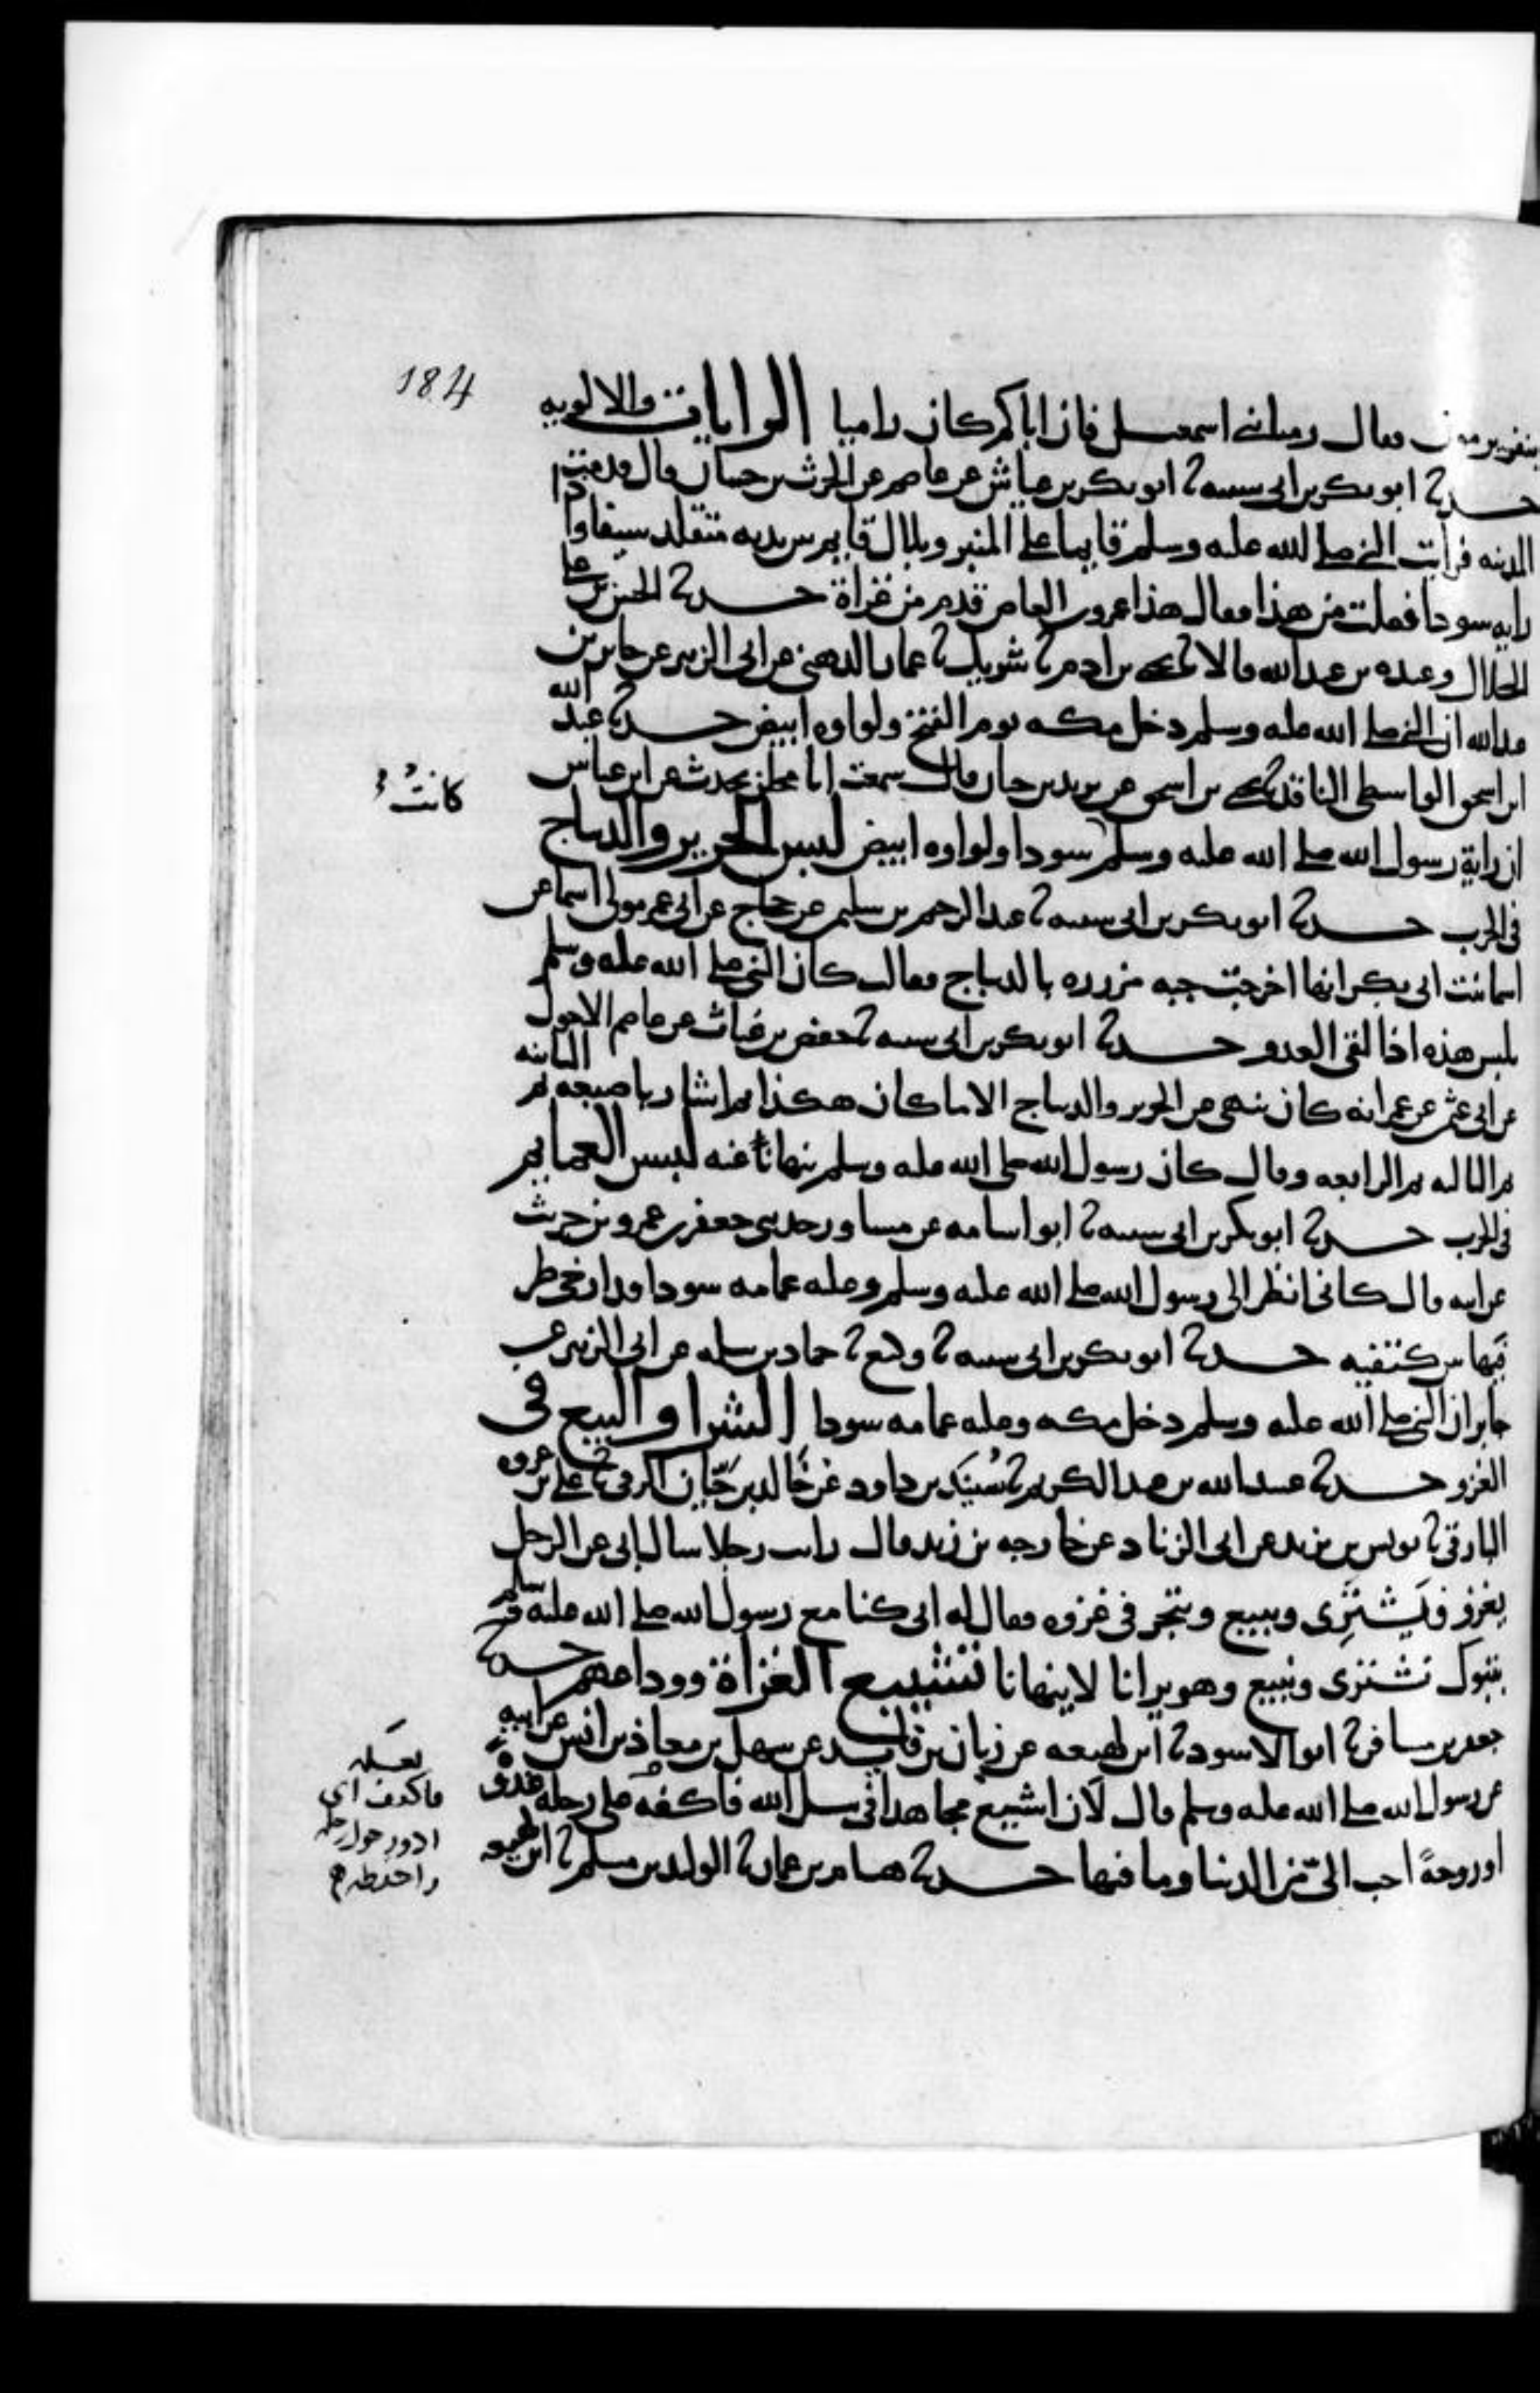 184
بنفر يرمون فقال رميا بني اسمعيل فان اباكم كان راميا الرايات والالويه
حدثنا ابو بكر بن ابي شيبه ثنا ابو بكر بن عياش عن عاصم عن الحرث بن حسان قال قدمت
المدينه فرايت النبي صلى الله عليه وسلم قايما على المنبر وبلال قايم بين يديه متقلد سيفا واذا
رايه سودا فقلت من هذا فقال هذا عمرو بن العاص قدم من غزاة حدثنا الحسن بن علي
الخلال وعبده بن عبد الله قالا ثنا يحيى بن ادم ثنا شريك ثنا عمار الدهني عن ابي الزبير عن جابر بن
عبد الله ان النبي صلى الله عليه وسلم دخل مكه يوم الفتح ولواوه ابيض حدثنا عبد الله
ابن اسحق الواسطي الناقد ثنا يحيى بن اسحق عن يزيد بن حيان قال سمعت ابا مجلز يحدث عن ابن عباس
كانت
ان راية رسول الله صلى الله عليه وسلم سودا ولواوه ابيض لبس الحرير والديباج
في الحرب حدثنا ابو بكر بن ابي شيبه ثنا عبد الرحيم بن سليمن عن حجاج عن ابي عمر مولى اسما عن
اسما بنت ابي بكر انها اخرجت جبه مزرره بالديباج فقالت كان النبي صلى الله عليه وسلم
يلبس هذه اذا لقي العدو حدثنا ابو بكر بن ابي شيبه ثنا حفص بن غياث عن عاصم الاحول
عن ابي عثمن عن عمر انه كان ينهى عن الحرير والديباج الا ما كان هكذا ثم اشار باصبعه ثم الثانيه
ثم الثالثه ثم الرابعه وقال كان رسول الله صلى الله عليه وسلم ينهانا عنه لبس العمايم
في الحرب حدثنا ابو بكر بن ابي شيبه ثنا ابو اسامه عن مساور حدثني جعفر بن عمرو بن حريث
عن ابيه قال كاني انظر الى رسول الله صلى الله عليه وسلم وعليه عمامه سودا قد ارخى طر
فيها بين كتفيه حدثنا ابو بكر بن ابي شيبه ثنا وكيع ثنا حماد بن سلمه عن ابي الزبير عن
جابر ان النبي صلى الله عليه وسلم دخل مكه وعليه عمامه سودا الشرا والبيع في
الغزو حدثنا عبيد الله بن عبد الكريم ثنا سُنَيد بن داود عن خالد بن حَيّان الرقي ثنا علي بن عروه
البارقي ثنا يونس بن يزيد عن ابي الزناد عن خارجه بن زيد قال رايت رجلا سال ابي عن الرجل
يغزو فيَشترِي ويبيع ويتجر في غزوه فقال له ابي كنا مع رسول الله صلى الله عليه وسلم
بتبوك نشتري ونبيع وهو يرانا لا ينهانا تشييع الغزاة ووداعهم حدثنا
جعفر بن مسافر ثنا ابو الاسود ثنا ابن لهيعه عن زبان بن فايد عن سهل بن معاذ بن انس عن ابيه
عن رسول الله صلى الله عليه وسلم قال لَان اشيع مجاهدا في سبيل الله فاكفه على رحله غدوة
اوروحةً احب اليّ من الدنيا وما فيها حدثنا هشام بن عمار ثنا الوليد بن مسلم ثنا ابن لهيعه